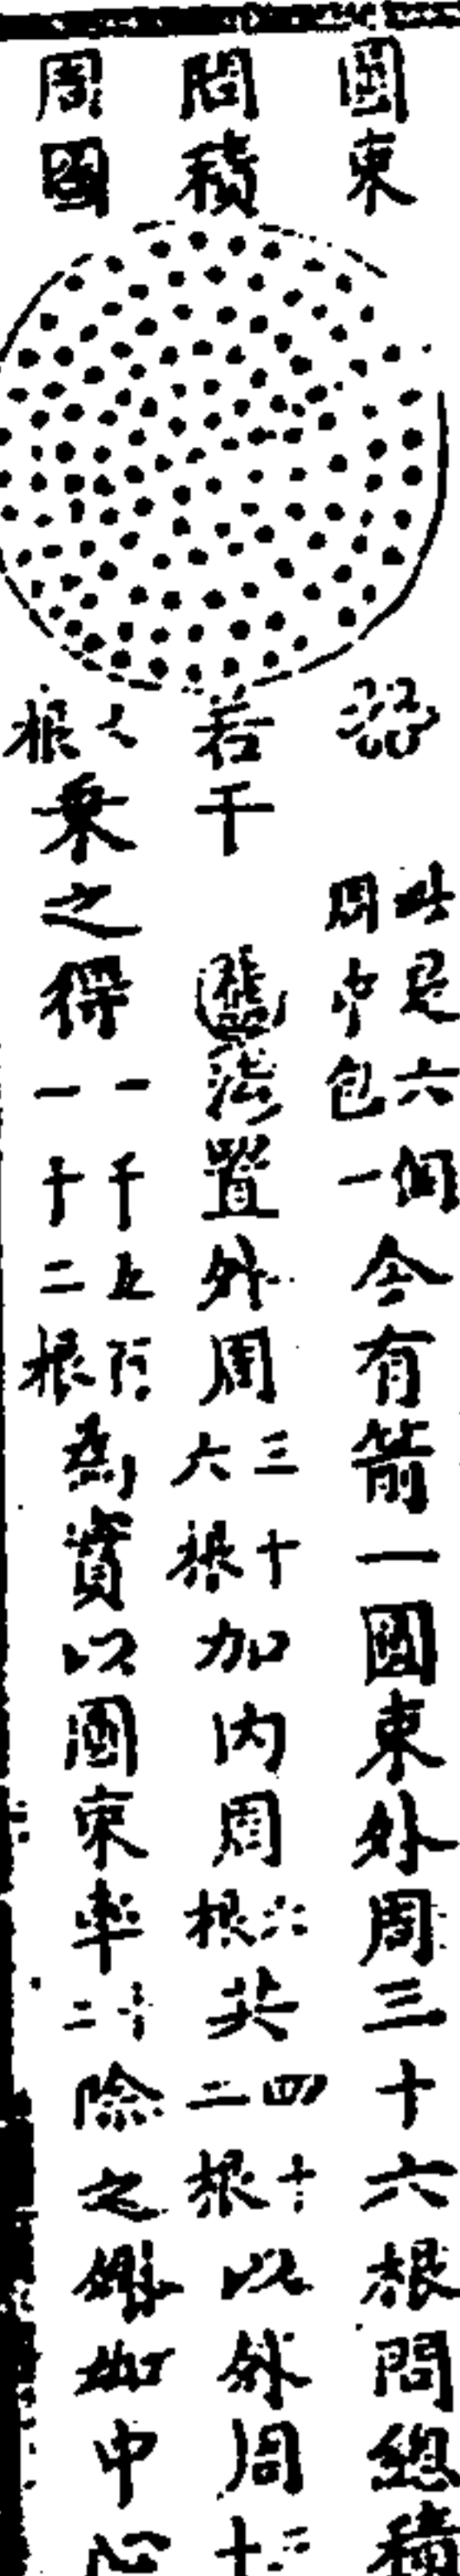 圓束
此是六個
周中包一
今有箭一圓束外周三十六根問總積
問積
若干
法置外周三十六根加内周六根共四十二根以外周三十
周圓
根乘之得一千五百一十二根為實以圓束率十二除之中心